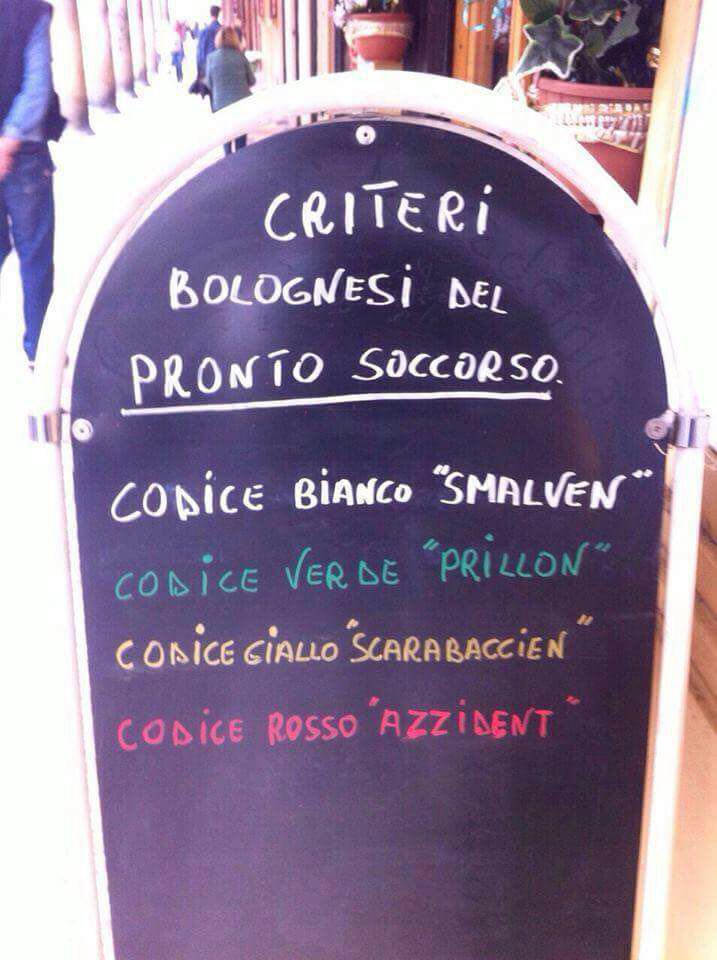 CRITERI
BOLOGNESI DEL
PRONTO SOCCORSO.
CODICE BIANCO "SMALVEN"
CODICE VERDE "PRILLON"
CODICE GIALLO "SCARABACCIEN"
CODICE ROSSO "AZZIDENT"